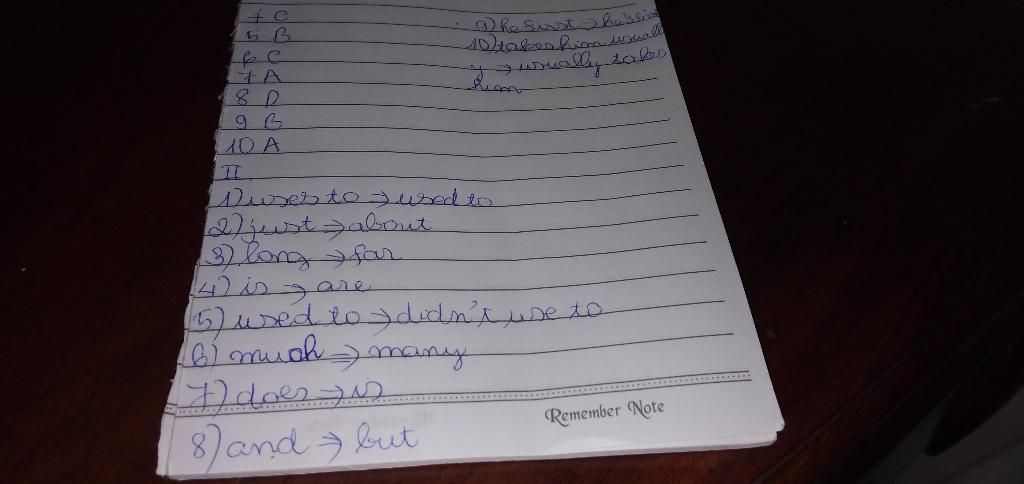 4 C
5 B
6 C
7 A
8 D
9 B
10 A
II
1) uses to → used to
2) just → about
3) long → far
4) is → are
5) used to → didn't use to
6) much → many
7) does → is
8) and → but
Remember Note
9) he
10) takes him usuall
y → usually takes
him